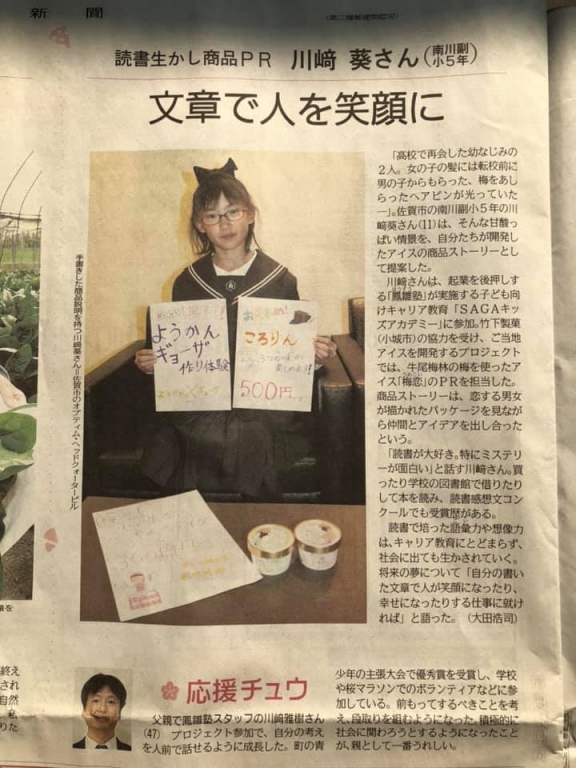 新聞
(第三種郵便物認可)
読書生かし商品PR 川﨑 葵さん(南川副小5年)
文章で人を笑顔に
「高校で再会した幼なじみの
2人。女の子の髪には転校前に
男の子からもらった、梅をあし
らったヘアピンが光っていた
―」。佐賀市の南川副小5年の川
﨑葵さん(11)は、そんな甘酸っ
ぱい情景を、自分たちが開発し
たアイスの商品ストーリーとし
て提案した。
川﨑さんは、起業を後押しす
る「鳳雛塾」が実施する子ども向
けキャリア教育「SAGAキッ
ズアカデミー」に参加。竹下製菓
(小城市)の協力を受け、ご当地
アイスを開発するプロジェクト
では、牛尾梅林の梅を使ったア
イス「梅恋」のPRを担当した。
商品ストーリーは、恋する男女
が描かれたパッケージを見なが
ら仲間とアイデアを出し合った
という。
「読書が大好き。特にミステリ
ーが面白い」と話す川﨑さん。買
ったり学校の図書館で借りたり
して本を読み、読書感想文コン
クールでも受賞歴がある。
読書で培った語彙力や想像力
は、キャリア教育にとどまらず、
社会に出ても生かされていく。
将来の夢について「自分の書い
た文章で人が笑顔になったり、
幸せになったりする仕事に就け
れば」と語った。(大田浩司)
ようかん
ギョーザ
作り体験
ころりん
500円
手書きした商品説明を持つ川﨑葵さん=佐賀市のオプティム・ヘッドクォータービル
応援チュウ
父親で鳳雛塾スタッフの川﨑雅樹さん
(47) プロジェクト参加で、自分の考え
を人前で話せるように成長した。町の青
少年の主張大会で優秀賞を受賞し、学校
や桜マラソンでのボランティアなどに参
加している。前もってするべきことを考
え、段取りを組むようになった。積極的に
社会に関わろうとするようになったこと
が、親として一番うれしい。